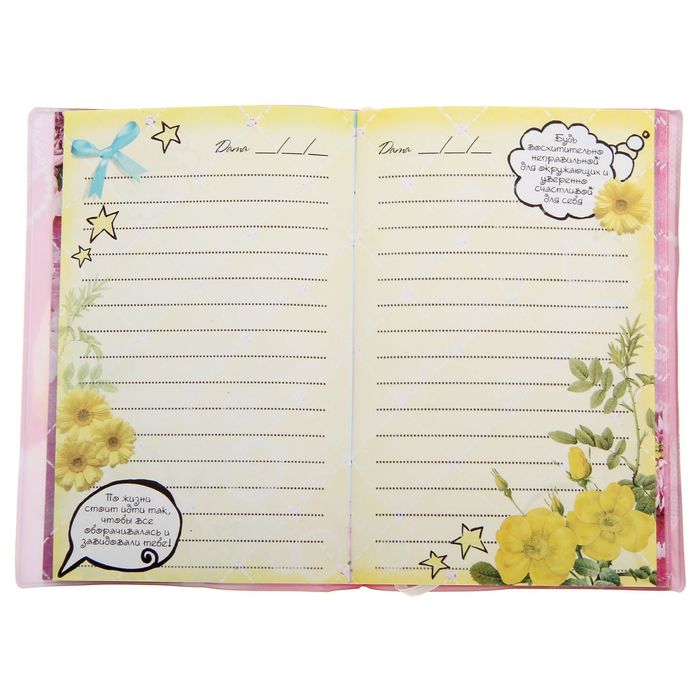 Дата __/__/__
По жизни
стоит идти так,
чтобы все
оборачивалась и
завидовали тебе!
Дата __/__/__
Будь
восхитительно
неправильной
для окружающих и
уверенно
счастливой
для себя